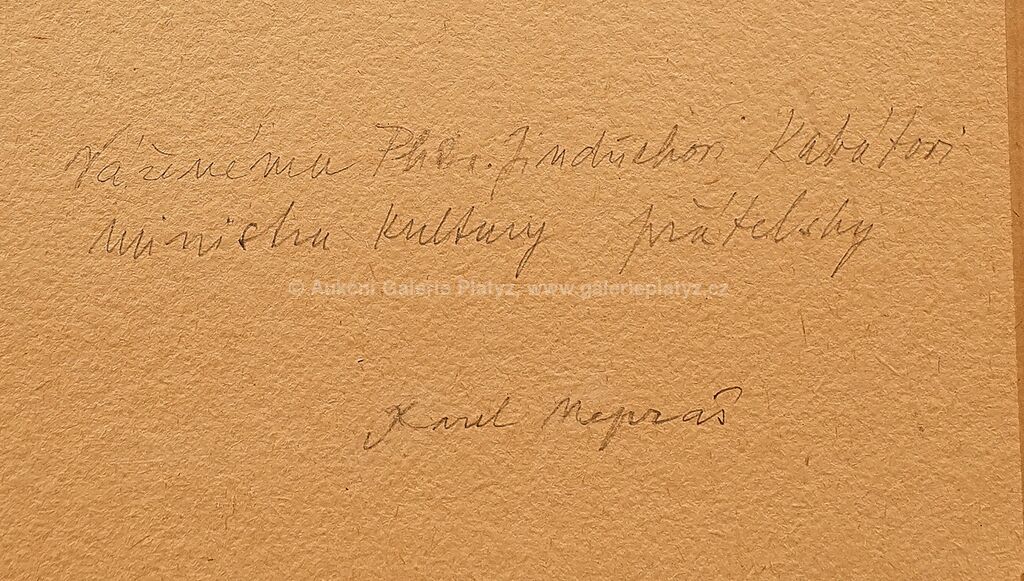 Váženému PhDr. Jindřichovi Kabátovi
ministru kultury přátelsky
© Aukční Galerie Platýz, www.galerieplatyz.cz
Karel Nepraš